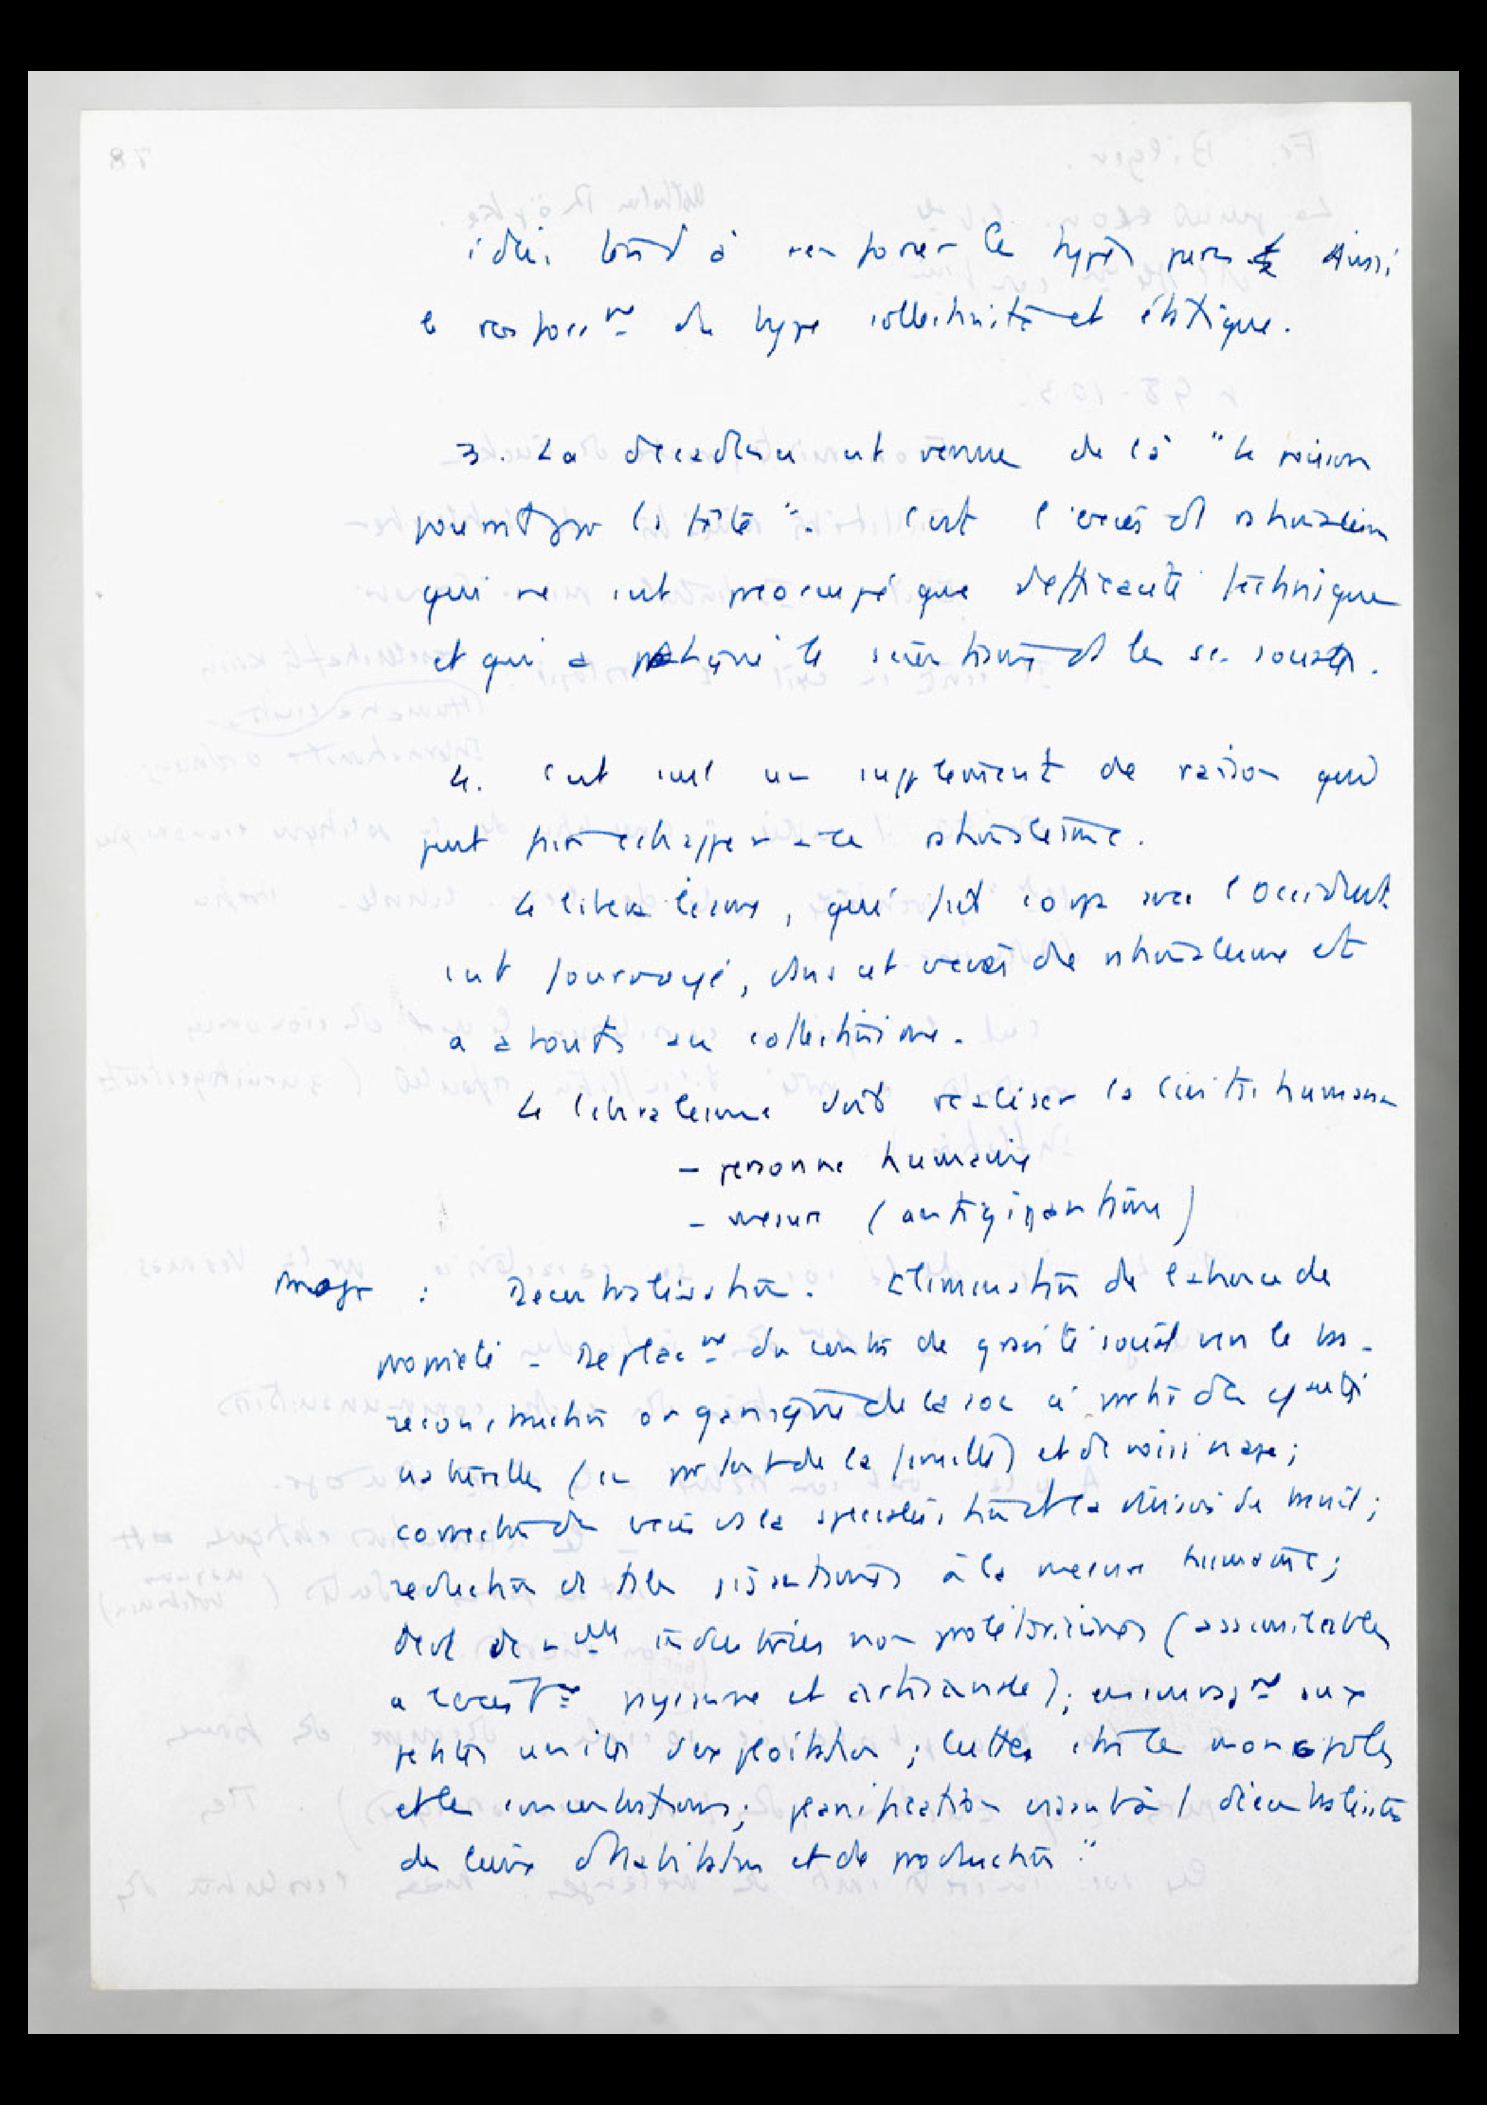 idéi tend à renforcer le type pur. Ainsi
le renforc^nt du type collectiviste et étatique.
3. La décadence est venue de là "la raison
pourrit par la tête". C'est l'excès de rationalisme
qui ne s'est préoccupé que d'efficacité technique
et qui a le scientisme ds les sc. sociales.
4. C'est seul un supplément de raison qui
peut faire échapper à ce rationalisme.
Le libéralisme, qui fait corps avec l'Occident
s'est fourvoyé, dans cet excès de rationalisme et
a abouti au collectivisme.
Le libéralisme doit réaliser la Civitas humana
- personne humaine
- mesure (antigigantisme)
: Décentralisation. Elimination de l'absence de
propriété - Déplac^nt du centre de gravité social vers le bas -
reconstruction organique de la soc à partir des
naturelles (en partant de la famille) et de voisinage ;
correction des excès ds la spécialisation et la division du travail ;
réduction de à la mesure humaine ;
devt de n^elles industries non prolétariennes (assimilables
à paysanne et artisanale) ; aux
petites unités d'exploitation ; luttes ctre les monopoles
et les concentrations ; planification visant à la décentralisation
des lieux d'habitation et de production"